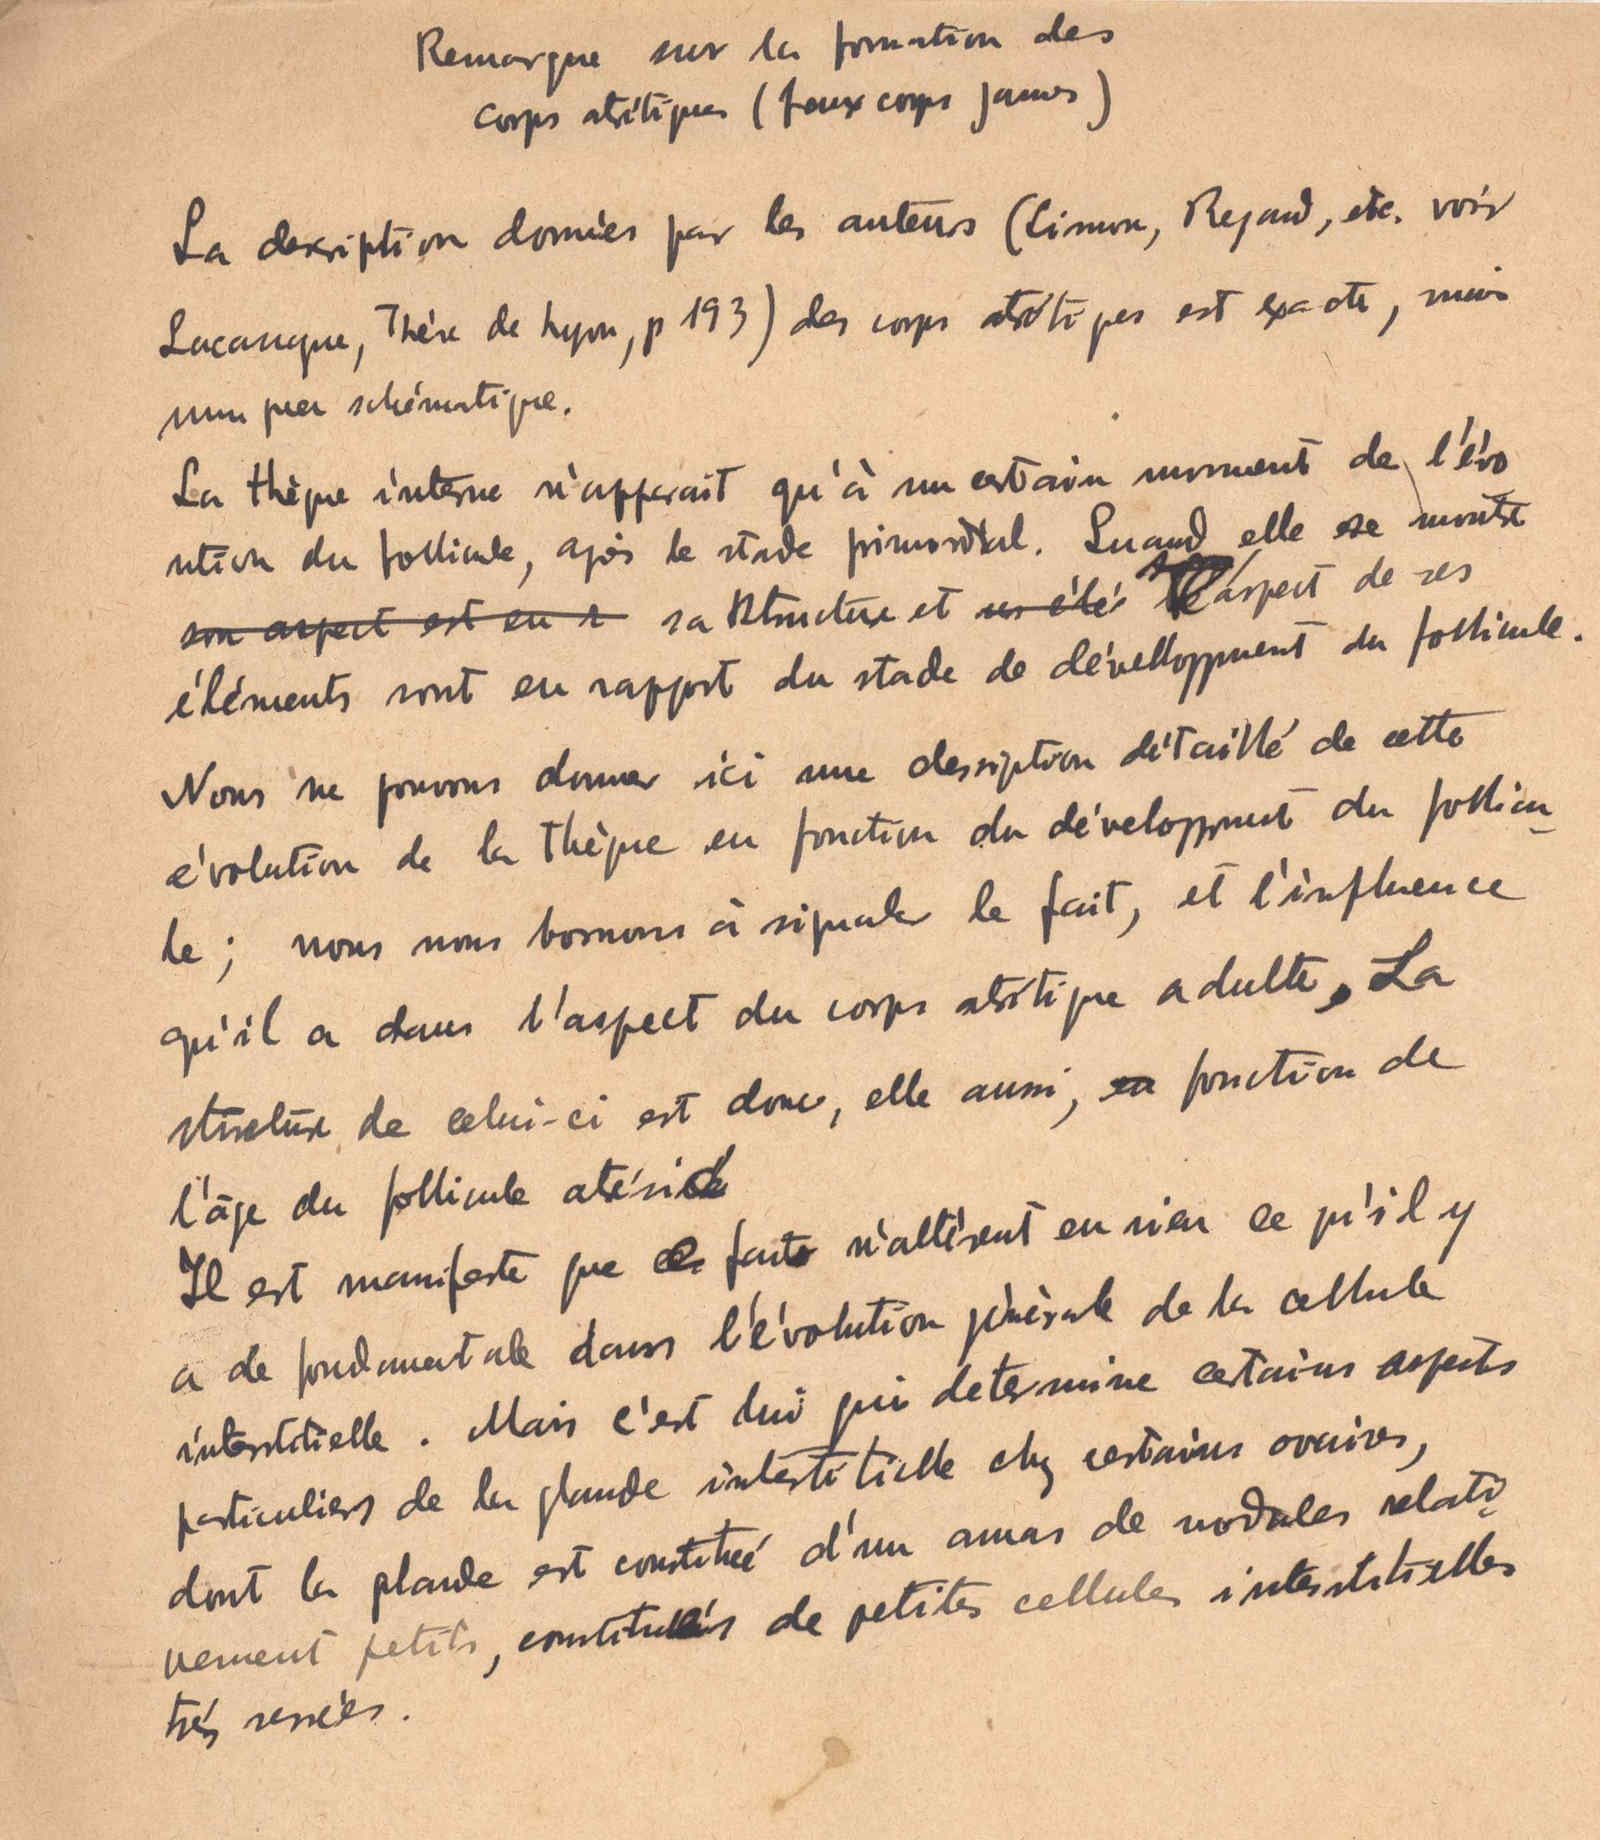 Remarque sur la formation des
corps atrétiques (faux corps jaunes)
La description donnés par les auteurs (Limon, Regaud, etc. voir
Lacassagne, Thèse de Lyon, p 193) des corps atrétiques est exacte, mais
un peu schématique.
La thèque interne n'apparait qu'à un certain moment de l'évo
ution du follicule, après le stade primordial. Quand elle se montre
son aspect est en r sa structure et ses élé l'aspect de ses
éléments sont en rapport du stade de dévelloppment du follicule.
Nous ne pouvons donner ici une description détaillé de cette
évolution de la thèque en fonction du développment du follicu_
le ; nous nous bornons à signaler le fait, et l'influence
qu'il a dans l'aspect du corps atrétique adulte. La
structure de celui-ci est donc, elle aussi, en fonction de
l'âge du follicule atrésié
Il est manifeste que ces faits n'altèrent en rien ce qu'il y
a de fondamentale dans l'évolution générale de la cellule
interstitielle. Mais c'est lui qui determine certains aspects
particuliers de la glande interstitielle chez certains ovaires,
dont la glande est constitué d'un amas de nodules relati_
vement petits, constitués de petites cellules interstitielles
très serrées.